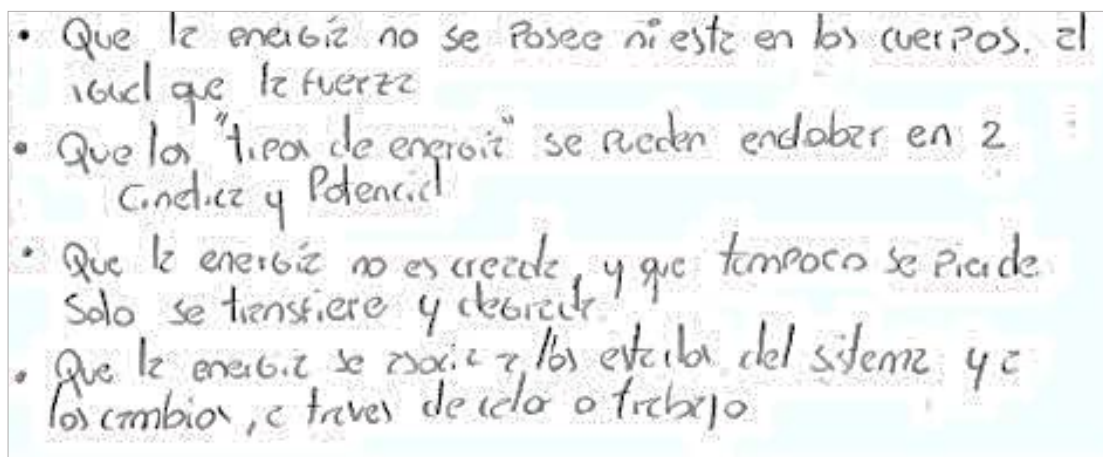 • Que la energía no se posee ni esta en los cuerpos. al
igual que la fuerza
• Que los "tipos de energía" se pueden endobar en 2
Cinetica y Potencial
• Que la energía no es creada, y que tampoco se pierde
Solo se transfiere y degrada.
• Que la energia se asocia a los estados del sistema y a
los cambios, a traves de calor o trabajo